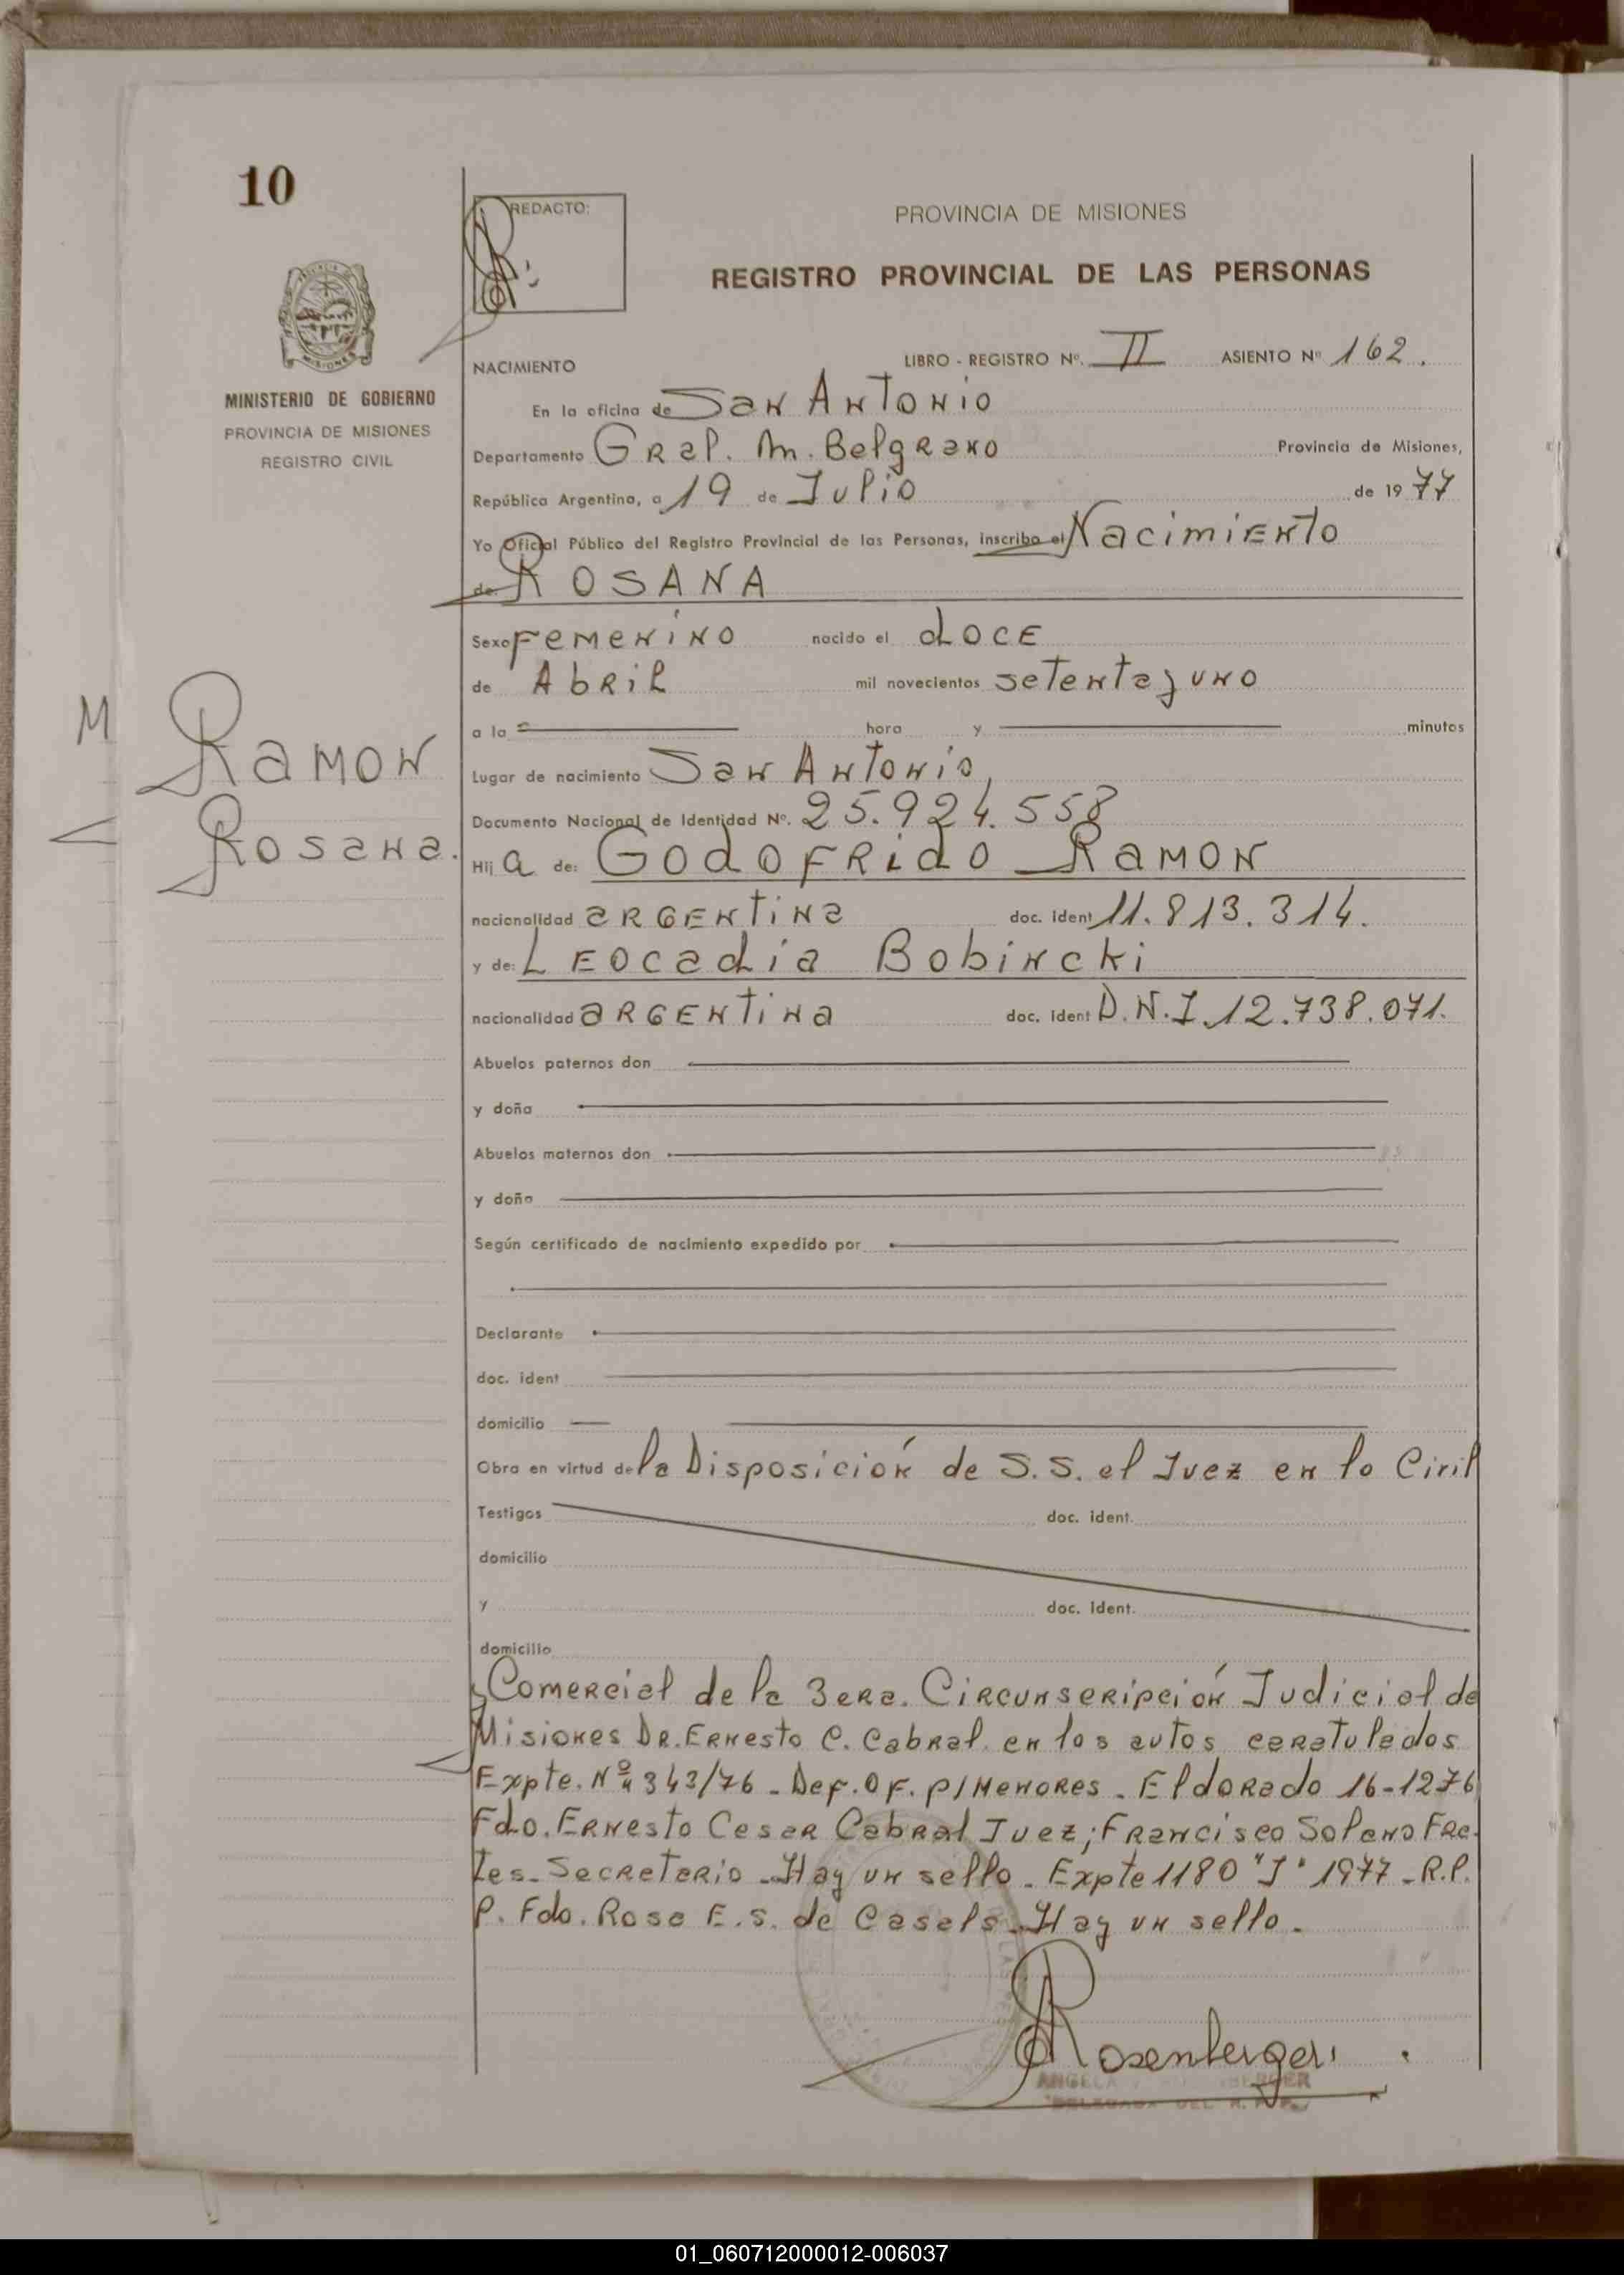 10
REDACTO:
PROVINCIA DE MISIONES
REGISTRO PROVINCIAL DE LAS PERSONAS
MINISTERIO DE GOBIERNO
PROVINCIA DE MISIONES
REGISTRO CIVIL
NACIMIENTO LIBRO - REGISTRO Nº. II ASIENTO Nº 162.
En la oficina de San Antonio
Departamento Gral. M. Belgrano Provincia de Misiones,
República Argentina, a 19 de Julio de 1977
Yo Oficial Público del Registro Provincial de las Personas, inscribo el Nacimiento
de ROSANA
Sexo Femenino nacido el doce
de Abril mil novecientos setenta y uno
a la hora y minutos
M Ramon
Rosana.
Lugar de nacimiento San Antonio,
Documento Nacional de Identidad Nº. 25.924.558
Hij a de: Godofrido Ramon
nacionalidad argentina doc. ident 11.813.314.
y de: Leocadia Bobincki
nacionalidad argentina doc. ident D.N.I. 12.738.071.
Abuelos paternos don
y doña
Abuelos maternos don
y doña
Según certificado de nacimiento expedido por
Declarante
doc. ident
domicilio
Obra en virtud de la Disposición de S.S. el Juez en lo Civil
Testigos doc. ident.
domicilio
y doc. ident.
domicilio
y Comercial de la 3era. Circunscripción Judicial de
Misiones Dr. Ernesto C. Cabral en los autos caratulados
Expte. Nº 343/76 - Def. Of. p/Menores - Eldorado 16-1276
Fdo. Ernesto Cesar Cabral Juez; Francisco Solano
Secretario - Hay un sello. Expte 1180 "J" 1977 - R.P.
P. Fdo. Rosa E.S. de Casals. Hay un sello.
Rosenberger
DEL R.P.P.
01_060712000012-006037